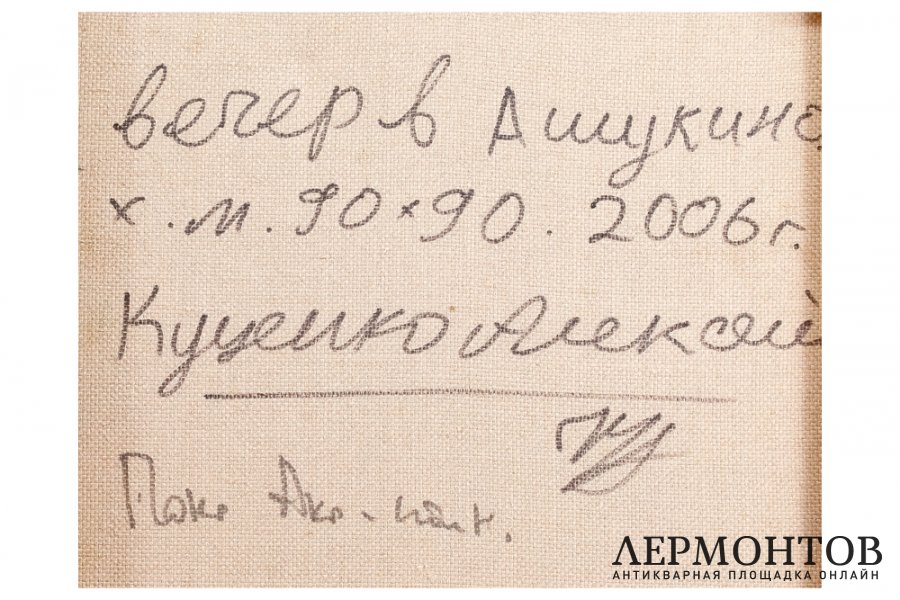 вечер в Ашукино
х.м. 90×90. 2006г.
Куценко Алексей
ЛЕРМОНТОВ
АНТИКВАРНАЯ ПЛОЩАДКА ОНЛАЙН